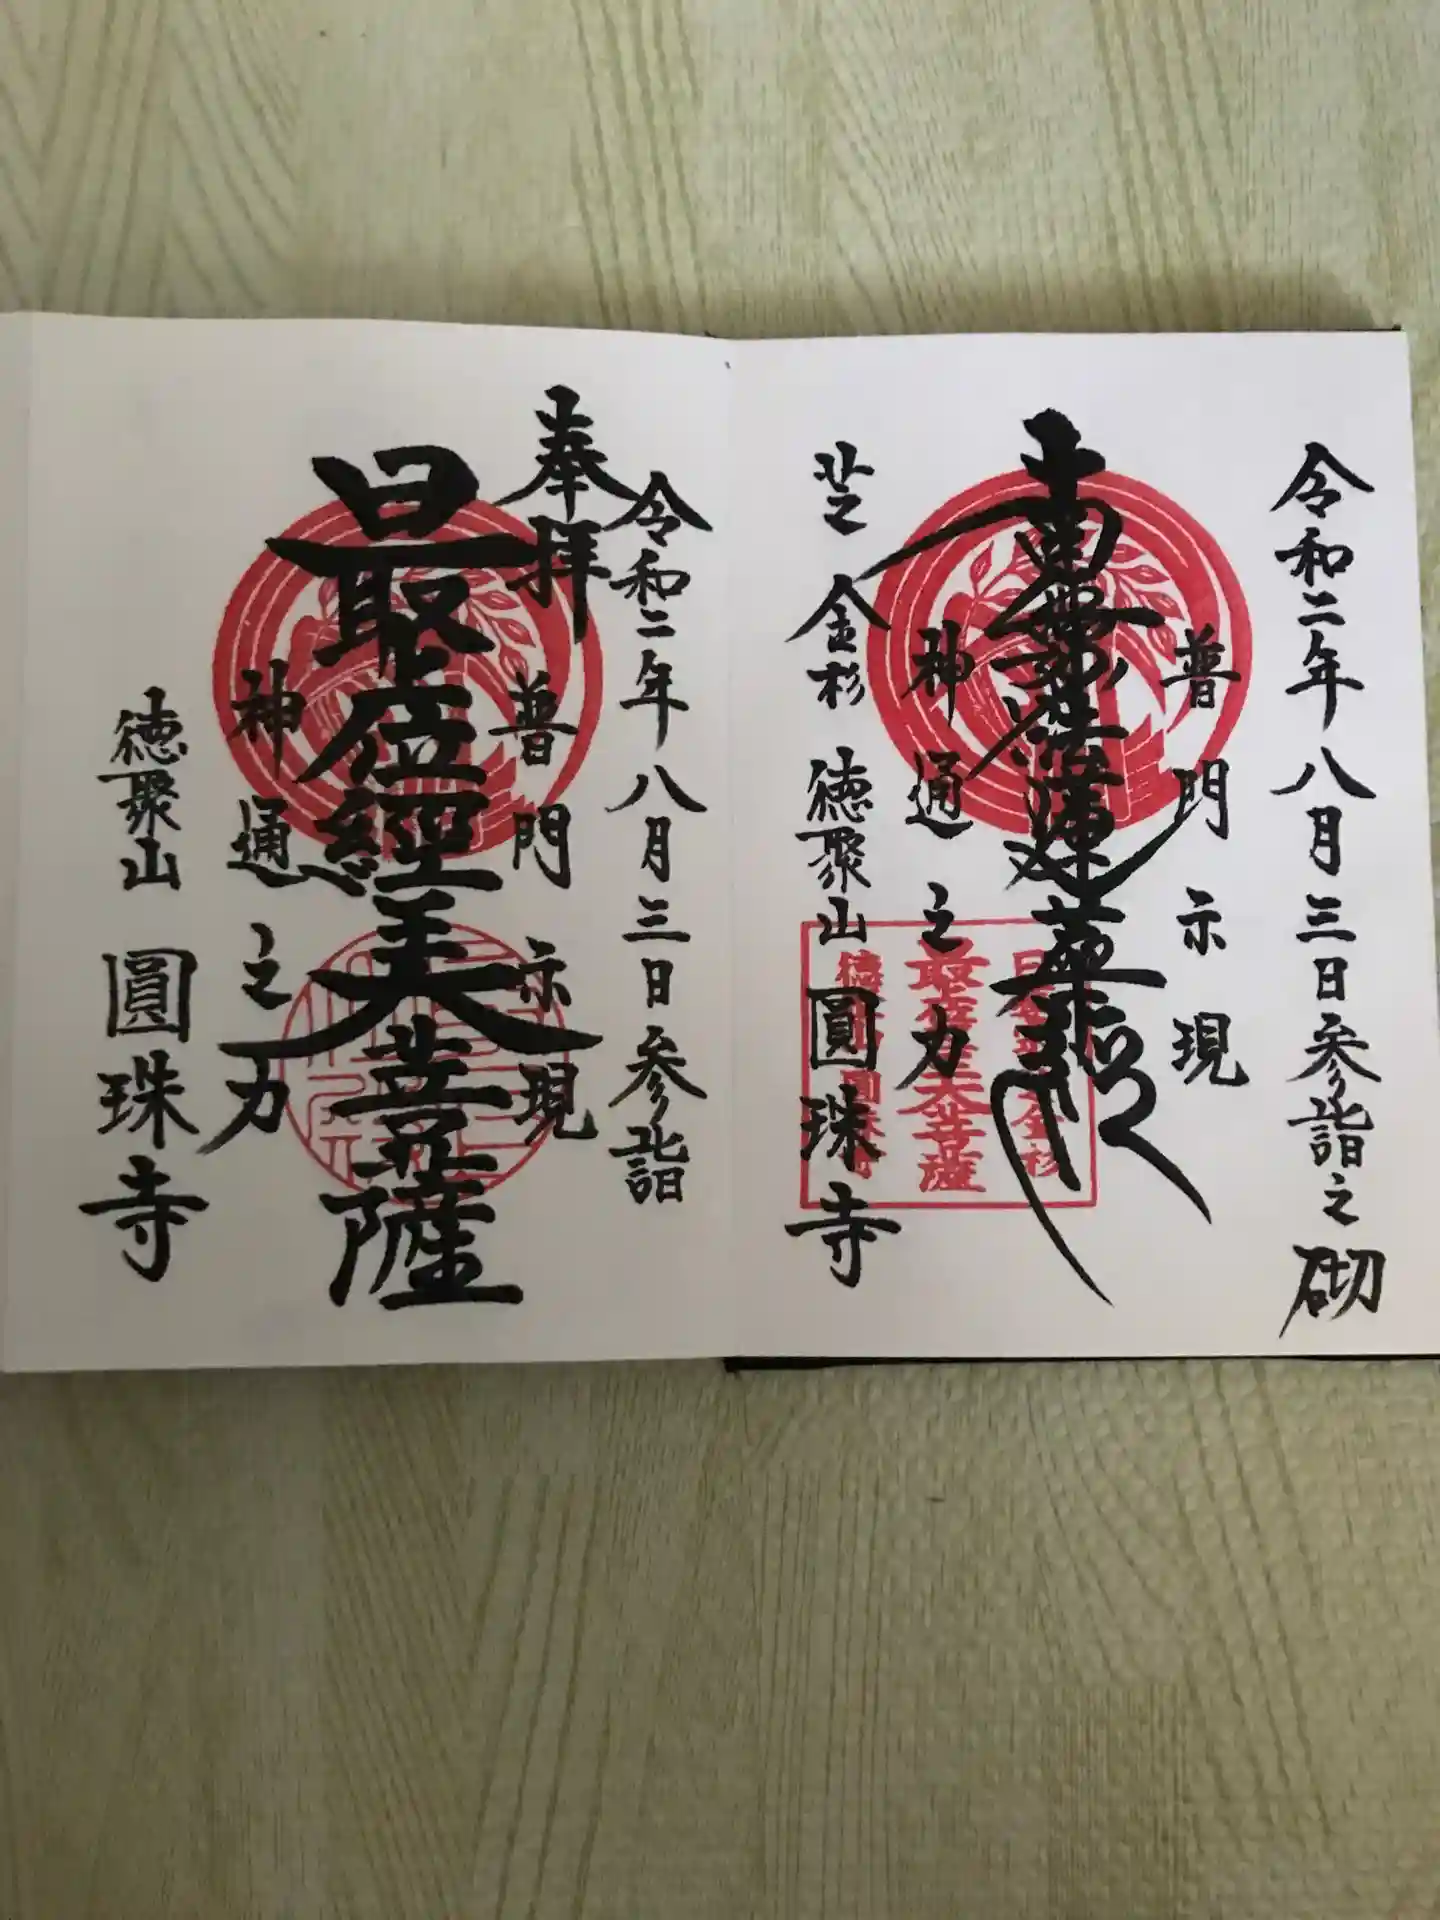 令和二年八月三日参詣之砌
普門示現
南無妙法蓮華経
神通之力
芝金杉 徳聚山圓珠寺
令和二年八月三日参詣
奉拝
普門示現
最位經王大菩薩
神通之力
徳聚山 圓珠寺